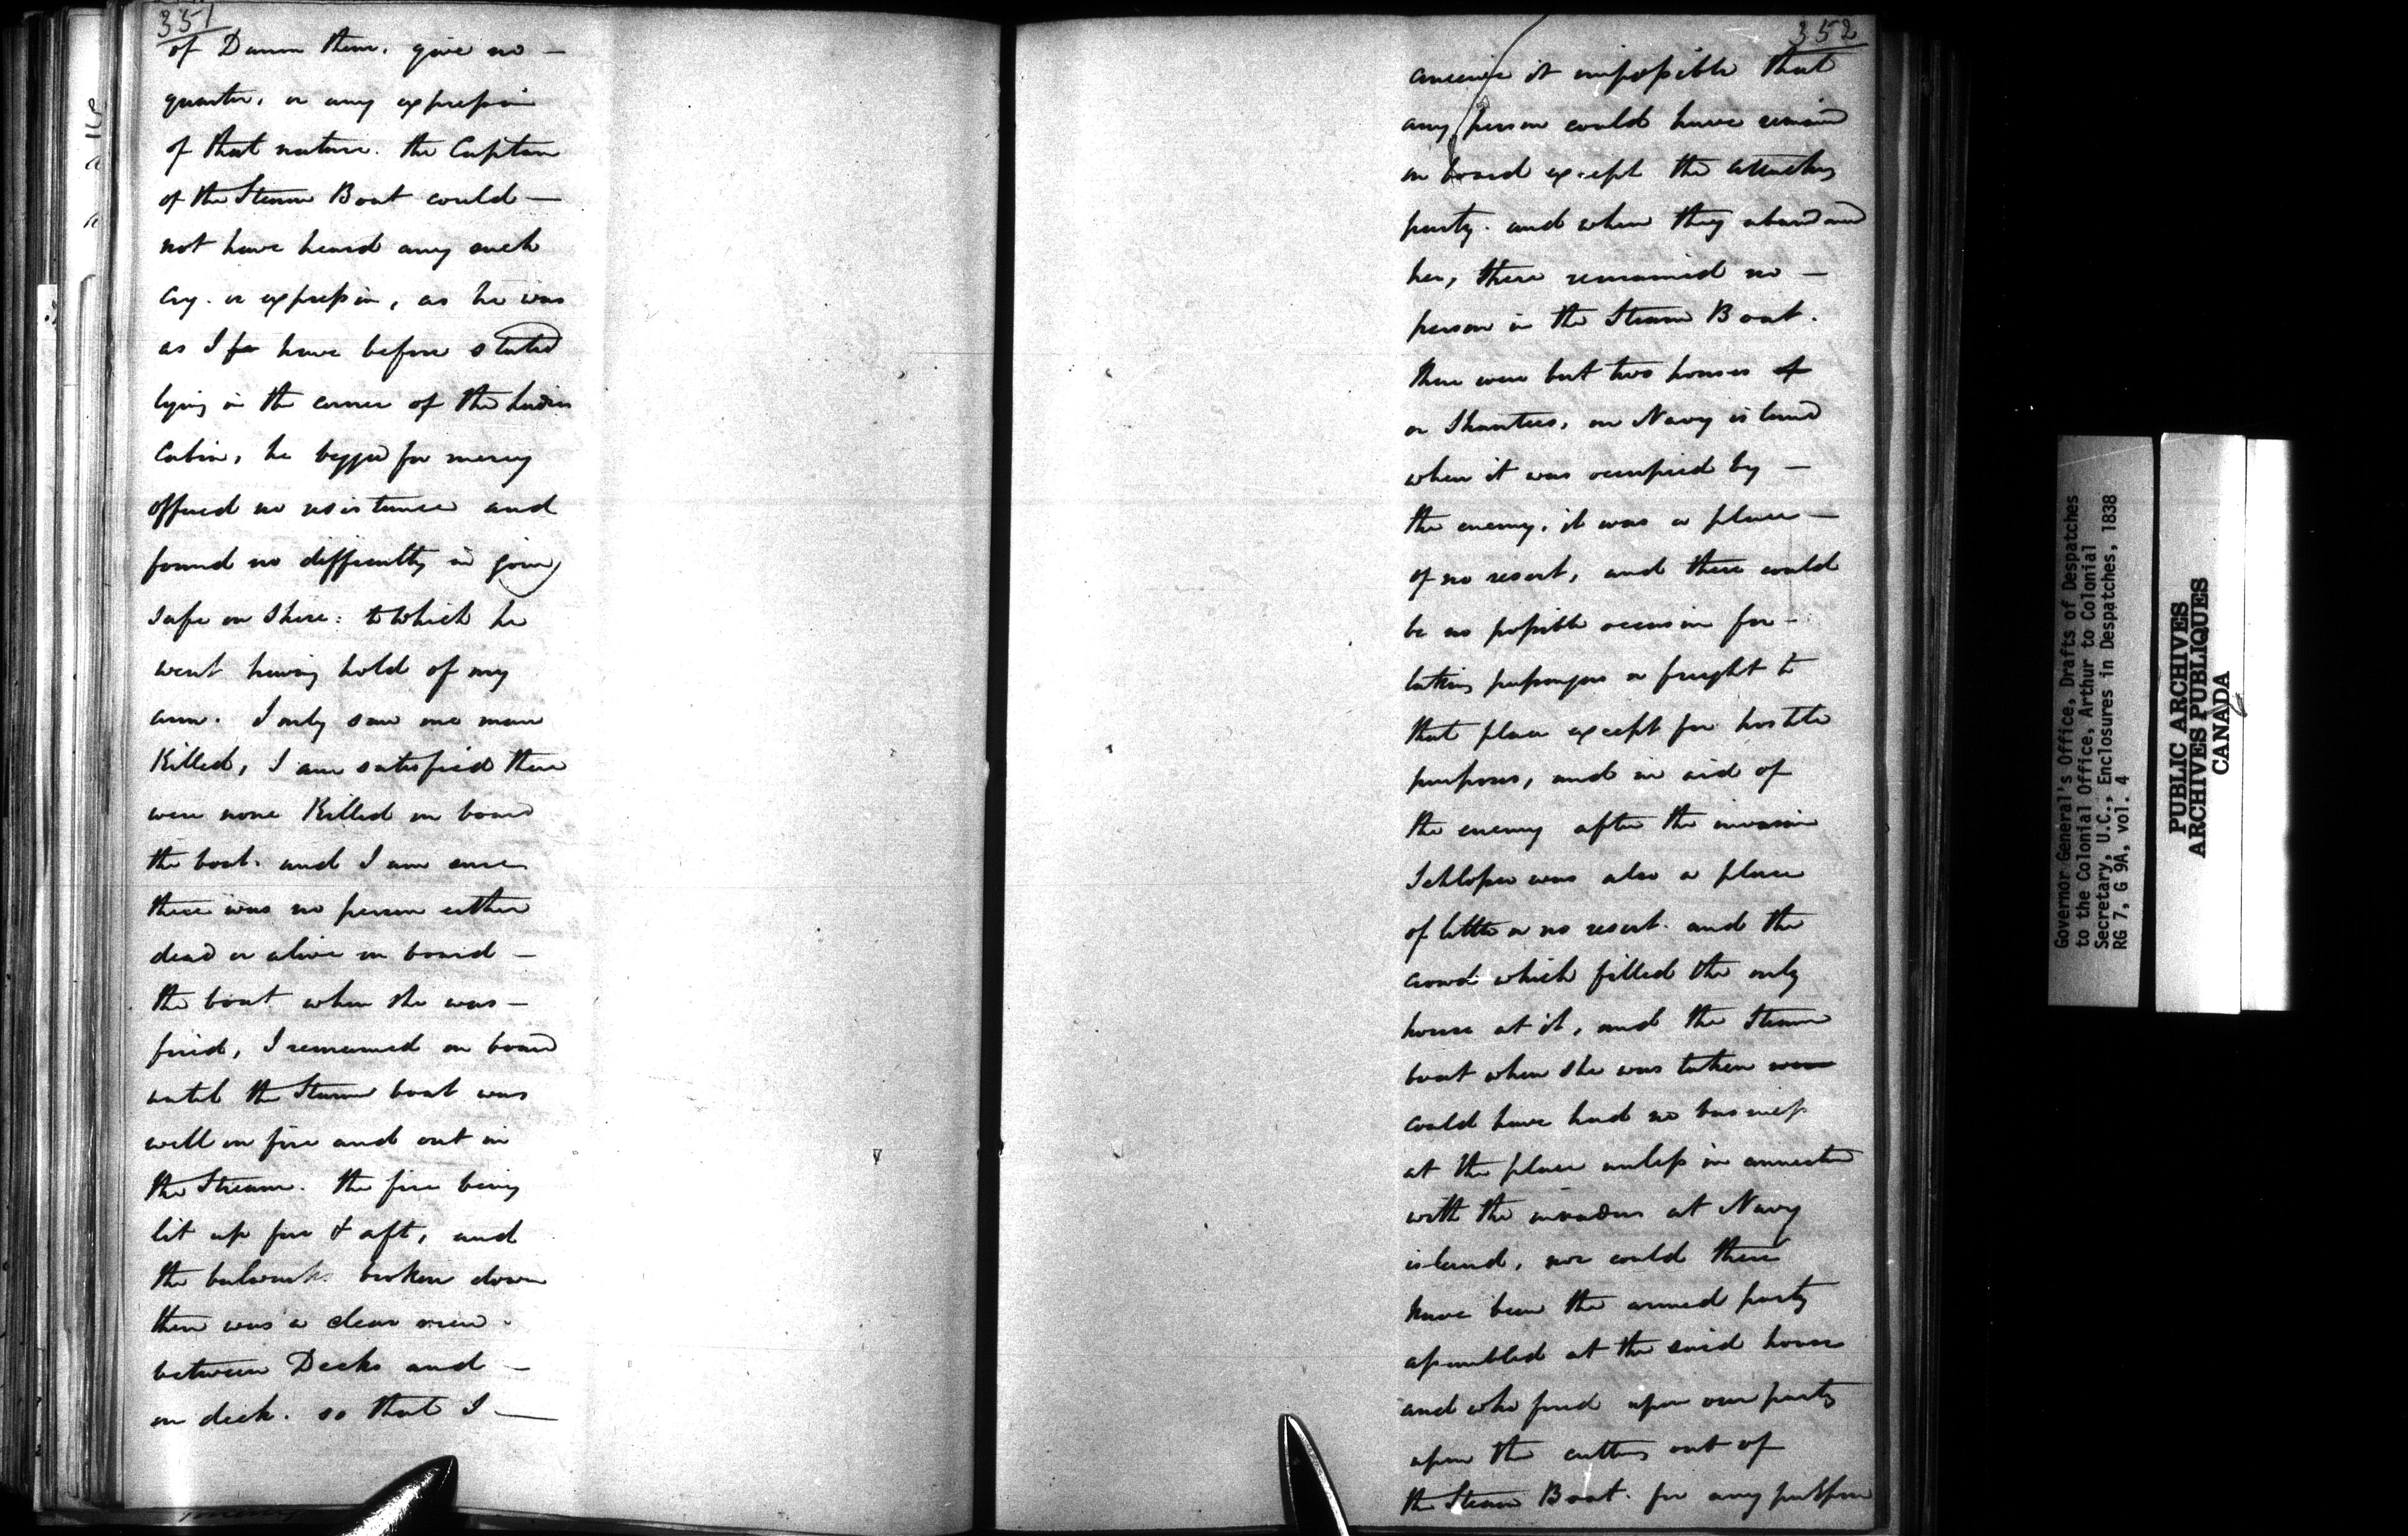 351
of Damn them. give no —
quarter. or any expression
of that nature. the Captain
of the Steam Boat could —
not have heard any such
Cry. or expression, as he was
as I have before stated
lying in the corner of the Ladies
Cabin, he begged for mercy
offered no resistance and
found no difficulty in going
safe on shore: to which he
went having hold of my
arm. I only saw one man
Killed, I am satisfied there
were none Killed on board
the boat. and I am sure
there was no person either
dead or alive on board —
the boat when she was —
fired, I remained on board
until the Steam boat was
well on fire and out in
the Stream. the fire being
lit up fore & aft, and
the bulwarks broken down
there was a clear view
between Decks and —
on deck. so that I —
352
conceive it impossible that
any person could have remained
on board except the attacking
party. and when they abandoned
her, there remained no —
person in the Steam Boat.
there were but two houses of
or Shantees, on Navy island
when it was occupied by —
the enemy. it was a place —
of no resort, and there could
be no possible occasion for —
taking passengers or freight to
that place except for hostile
purposes, and in aid of
the enemy after the invasion
Schlosser was also a place
of little or no resort. and the
crowd which filled the only
house at it, and the Steam
boat when she was taken
could have had no business
at the place unless in connected
with the invaders at Navy
island, nor could there
have been the armed party
assembled at the said house
and who fired upon our party
upon the cutting out of
the Steam Boat. for any purpose
Governor General's Office, Drafts of Despatches
to the Colonial Office, Arthur to Colonial
Secretary, U.C., Enclosures in Despatches, 1838
RG 7, G 9A, vol. 4
PUBLIC ARCHIVES
ARCHIVES PUBLIQUES
CANADA